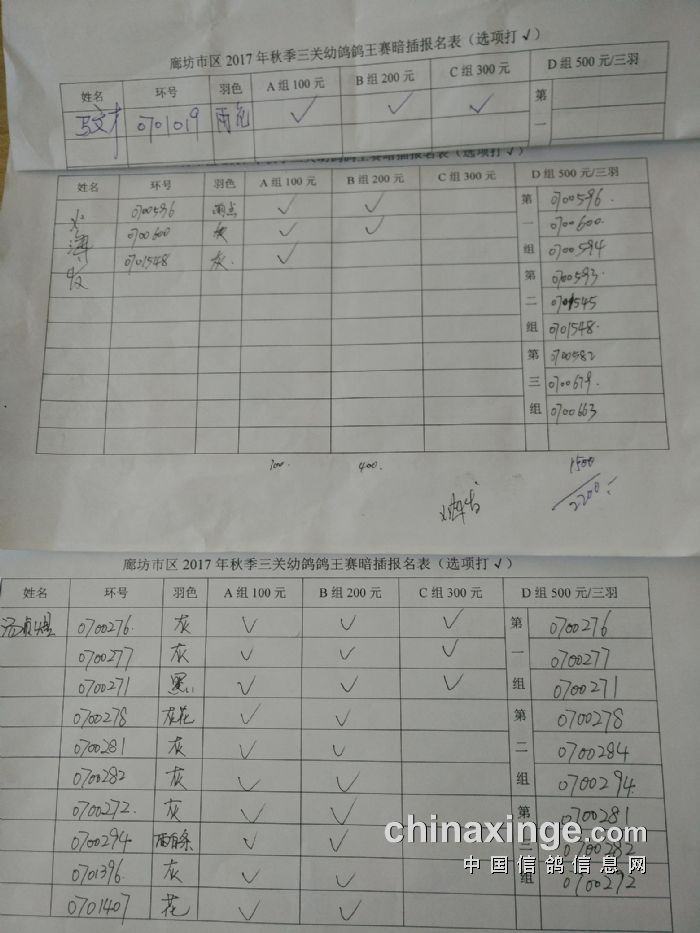 廊坊市区 2017 年秋季三关幼鸽鸽王赛暗插报名表（选项打 √）
姓名 环号 羽色 A 组 100 元 B 组 200 元 C 组 300 元 D 组 500 元/三羽
0701019 雨花 ✓ ✓ ✓ 第
一
幼鸽鸽王赛暗插报名表（选项打 √）
姓名 环号 羽色 A 组 100 元 B 组 200 元 C 组 300 元 D 组 500 元/三羽
0700596 雨点 ✓ ✓ 第 0700596.
0700600 灰 ✓ ✓ 一 0700600.
0701548 灰. ✓ 组 0700594
第 0700593.
二 0701545
组 0701548.
第 0700582
三 0700679.
组 0700663
300. 400. 1500
2200
廊坊市区 2017 年秋季三关幼鸽鸽王赛暗插报名表（选项打 √）
姓名 环号 羽色 A 组 100 元 B 组 200 元 C 组 300 元 D 组 500 元/三羽
0700276. 灰 ✓ ✓ ✓ 第 0700276
0700277 灰 ✓ ✓ ✓ 一 0700277
0700271 黑 ✓ ✓ ✓ 组 0700271
0700278 灰花 ✓ ✓ 第 0700278
0700281 灰 ✓ ✓ 二 0700284
0700282 灰 ✓ ✓ 组 0700294.
0700272. 灰 ✓ ✓ 第 0700281
0700294 ✓ ✓ 三 0700282
0701396. 灰 ✓ ✓ 组 0700272
0701407 花 ✓ ✓
chinaxinge.com
中国信鸽信息网